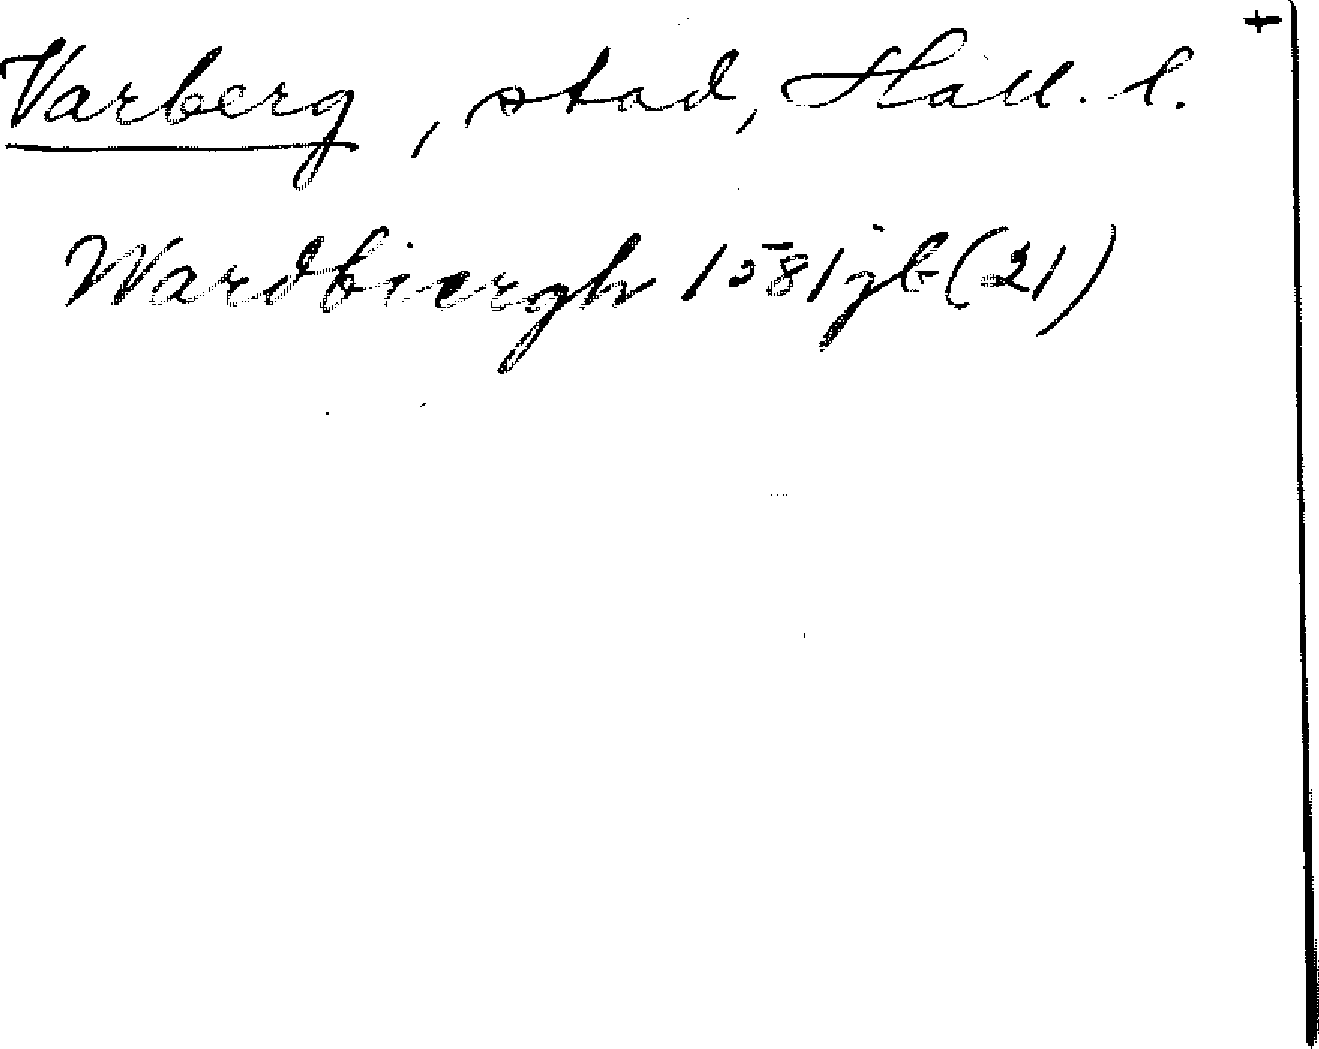 Varberg, stad, Hall. l.
Wardbiergh 1581 jb (21)